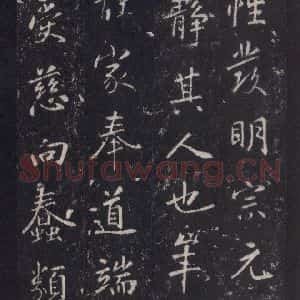 性發明宗元
靜其人也年
在家奉道端
受慈向蠢類
Shufawang.CN